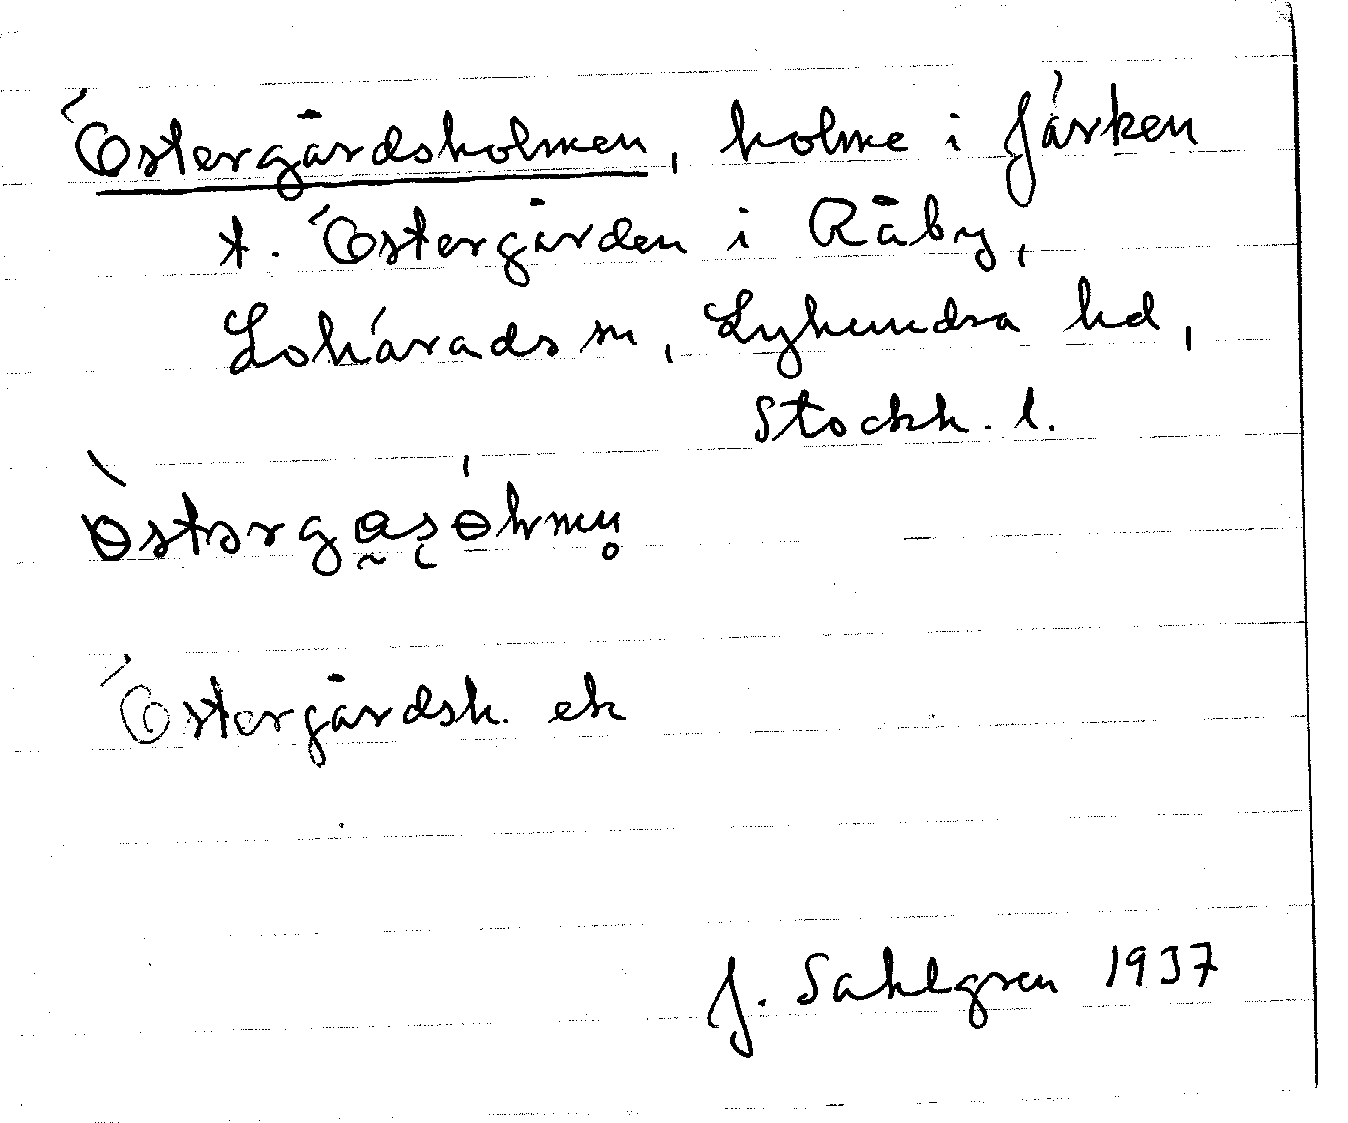 Östergårdsholmen, holme i Järken
t. Östergården i Råby,
Lohärads sn, Lyhundra hd,
Stockh. l.
Östergårdsh. ek
J. Sahlgren 1937